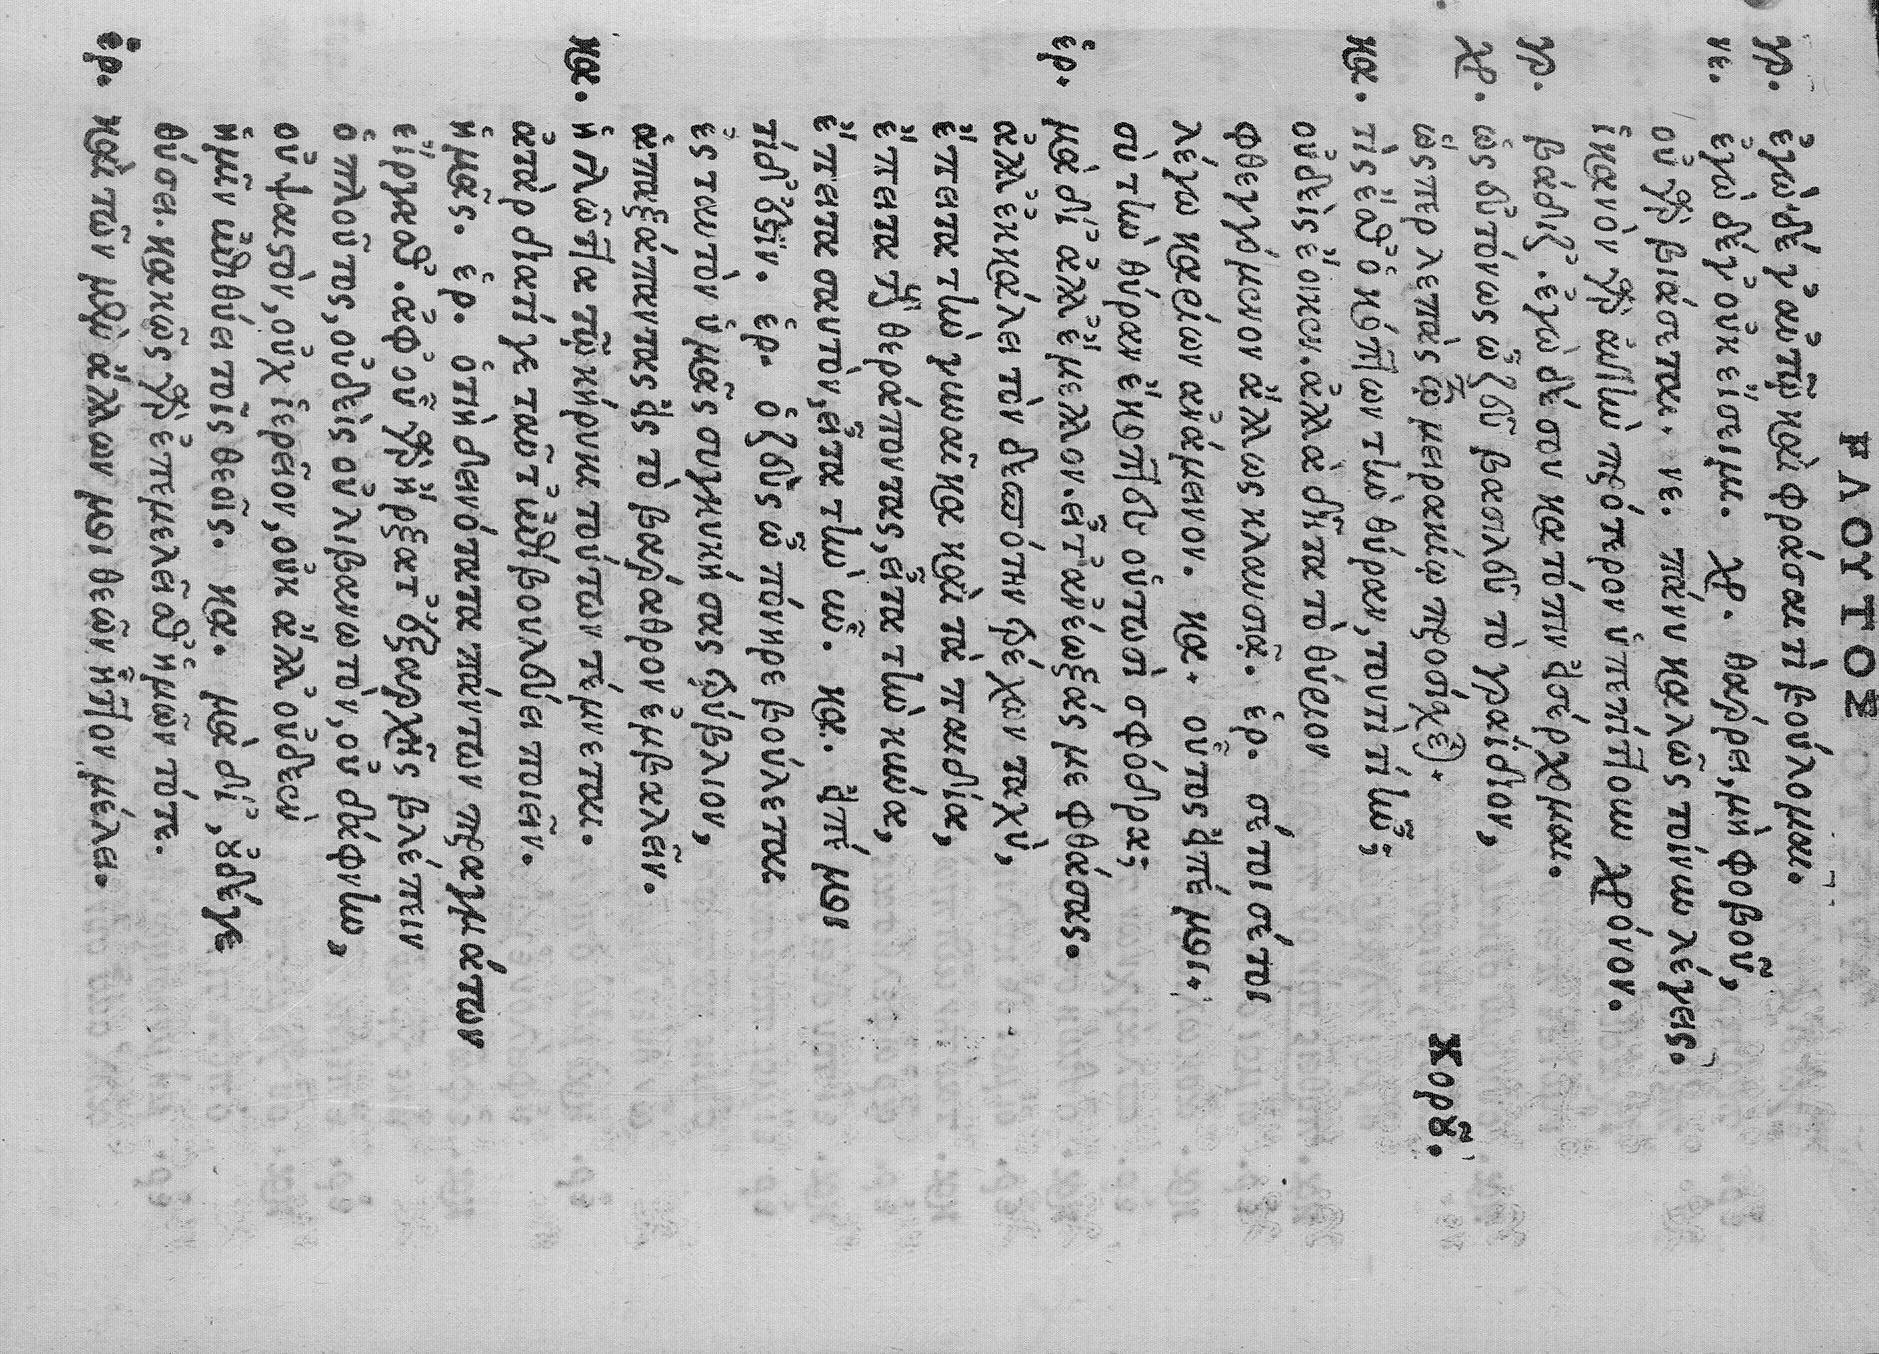 ΠΛΟΥΤΟΣ
γρ. ἐγὼ δέ γ' αὐτῷ καὶ φράσαι τὶ βούλομαι.
νε. ἐγὼ δέ γ' οὐκ εἴσειμι. χρ. θάρρει, μὴ φοβοῦ,
οὐ γὰρ βιάσεται. νε. πάνυ καλῶς τοίνυν λέγεις.
ἱκανὸν γὰρ αὐτὴν πρότερον ὑπεπίττουν χρόνον.
γρ. βάδιζ'. ἐγὼ δέ σου κατόπιν εἰσέρχομαι.
χρ. ὡς εὐτόνως ὦ ζεῦ βασιλεῦ τὸ γραίδιον,
ὥσπερ λεπὰς τῷ μειρακίῳ
Χορȣ͂.
κα. τίς ἔσθ' ὁ κόπτων τὴν θύραν, τουτὶ τί ἦν;
οὐδεὶς ἔοικεν. ἀλλὰ δῆτα τὸ θύριον
φθεγγόμενον ἄλλως κλαυσιᾷ. ἑρ. σέ τοι σέ τοι
λέγω καρίων ἀνάμεινον. κα. οὗτος εἰπέ μοι.
σὺ τὴν θύραν ἔκοπτες οὑτωσὶ σφόδρα;
ἑρ. μὰ δί' ἀλλ' ἔμελλον. εἶτ' ἀνέῳξάς με φθάσας.
ἀλλ' ἐκκάλει τὸν δεσπότην τρέχων ταχὺ,
ἔπειτα τὴν γυναῖκα καὶ τὰ παιδία,
ἔπειτα τοὺς θεράποντας, εἶτα τὴν κύνα,
ἔπειτα σαυτὸν, εἶτα τὴν ὗν. κα. εἰπέ μοι
τί δ' ἔστιν. ἑρ. ὁ ζεὺς ὦ πόνηρε βούλεται
ἐς ταυτὸν ὑμᾶς συγκυκήσας τρύβλιον,
ἁπαξάπαντας εἰς τὸ βάραθρον ἐμβαλεῖν.
κα. ἡ γλῶττα τῷ κήρυκι τούτων τέμνεται.
ἀτὰρ διατί γε ταῦτ' ἐπιβουλεύει ποιεῖν.
ἡμᾶς. ἑρ. ὁτιὴ δεινότατα πάντων πραγμάτων
εἴργασθ'. ἀφ' οὗ γὰρ ἤρξατ' ἐξαρχῆς βλέπειν
ὁ πλοῦτος, οὐδεὶς οὐ λιβανωτὸν, οὐ δάφνην,
οὐ ψαιστὸν, οὐχ ἱερεῖον, οὐκ ἄλλ' οὐδεὲν
ἡμῖν ἔτι θύει τοῖς θεοῖς. κα. μὰ δί', ȣ̓δέ γε
θύσει. κακῶς γὰρ ἐπεμελεῖσθ' ἡμῶν τότε.
ἑρ. καὶ τῶν μὲν ἄλλων μοι θεῶν ἧττον μέλει.